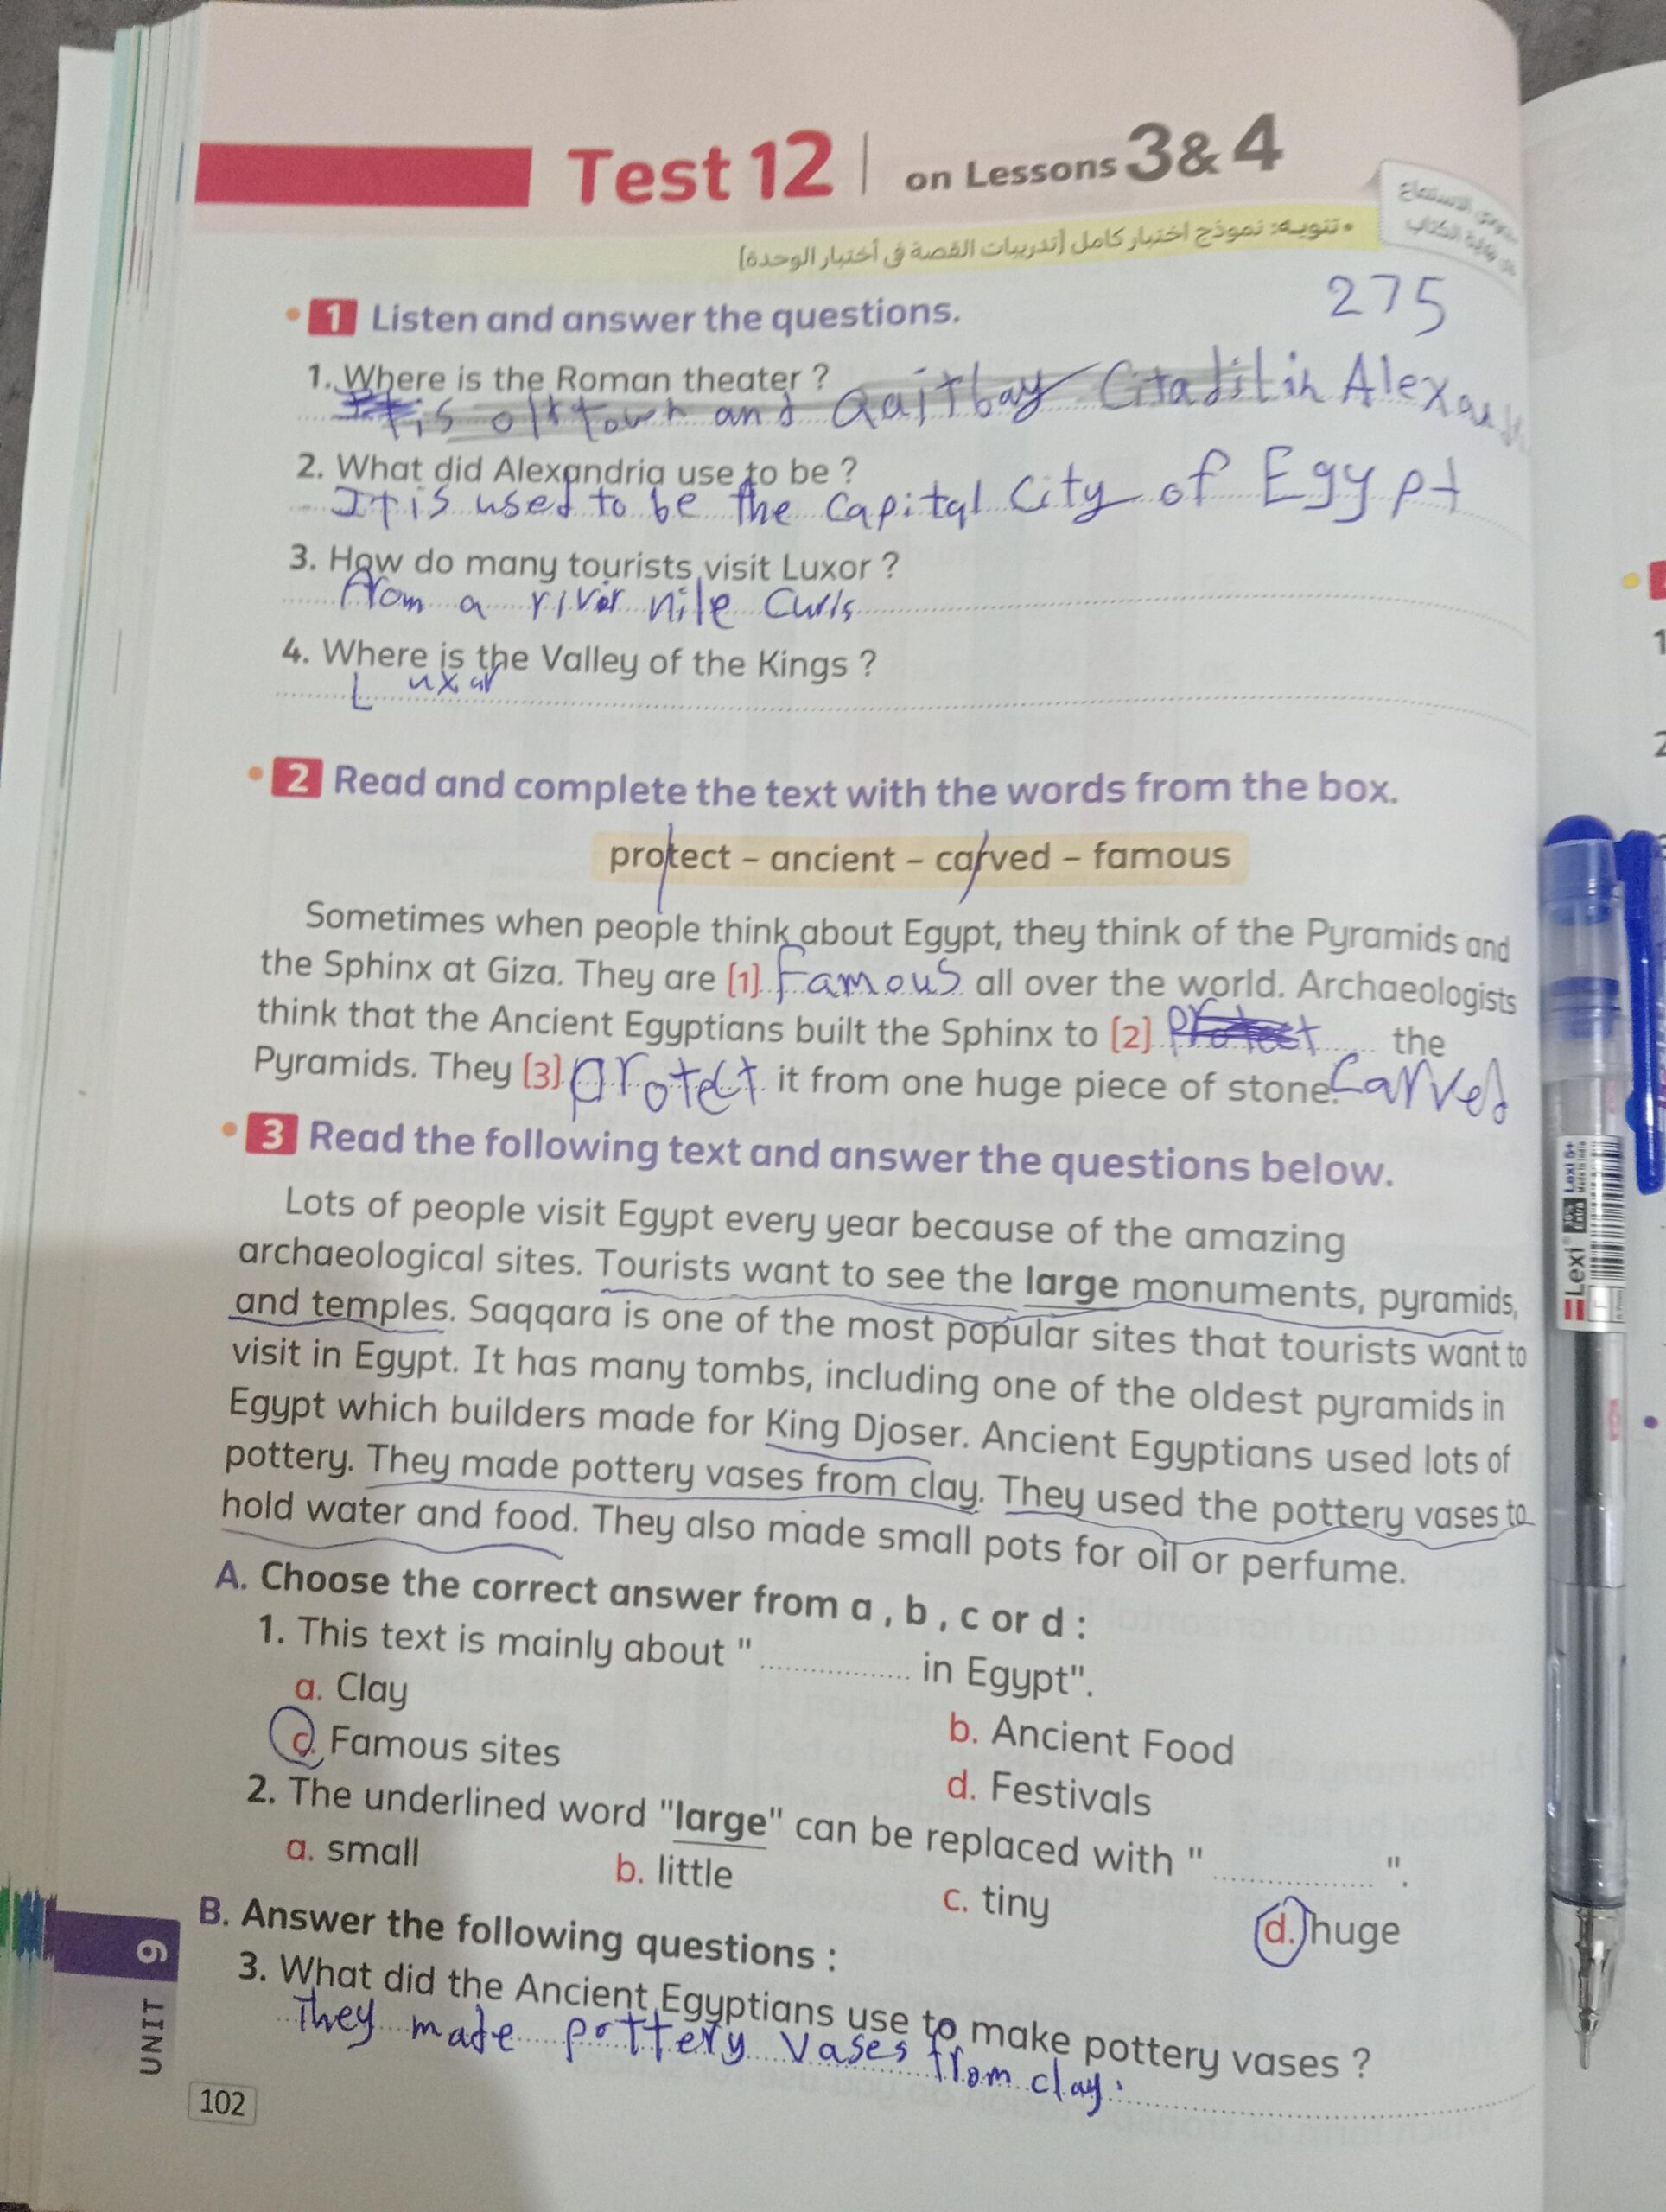 Test 12 | on Lessons 3 & 4
• تنويه: نموذج اختبار كامل (تدريبات القصة في أختبار الوحدة)
275
1 Listen and answer the questions.
1. Where is the Roman theater ?
is town and Qaitbay in
2. What did Alexandria use to be ?
It is used to be the capital City of Egypt
3. How do many tourists visit Luxor ?
from a river nile
4. Where is the Valley of the Kings ?
2 Read and complete the text with the words from the box.
protect – ancient – carved – famous
Sometimes when people think about Egypt, they think of the Pyramids and
the Sphinx at Giza. They are (1) Famous all over the world. Archaeologists
think that the Ancient Egyptians built the Sphinx to (2) protect the
Pyramids. They (3) protect it from one huge piece of stone. Carved
3 Read the following text and answer the questions below.
Lots of people visit Egypt every year because of the amazing
archaeological sites. Tourists want to see the large monuments, pyramids,
and temples. Saqqara is one of the most popular sites that tourists want to
visit in Egypt. It has many tombs, including one of the oldest pyramids in
Egypt which builders made for King Djoser. Ancient Egyptians used lots of
pottery. They made pottery vases from clay. They used the pottery vases to
hold water and food. They also made small pots for oil or perfume.
A. Choose the correct answer from a , b , c or d :
1. This text is mainly about " ............... in Egypt".
a. Clay
b. Ancient Food
c. Famous sites
d. Festivals
2. The underlined word "large" can be replaced with " ............... ".
a. small b. little c. tiny d. huge
B. Answer the following questions :
3. What did the Ancient Egyptians use to make pottery vases ?
They made pottery vases from clay.
UNIT 9
102
Lexi
Lexi 5+